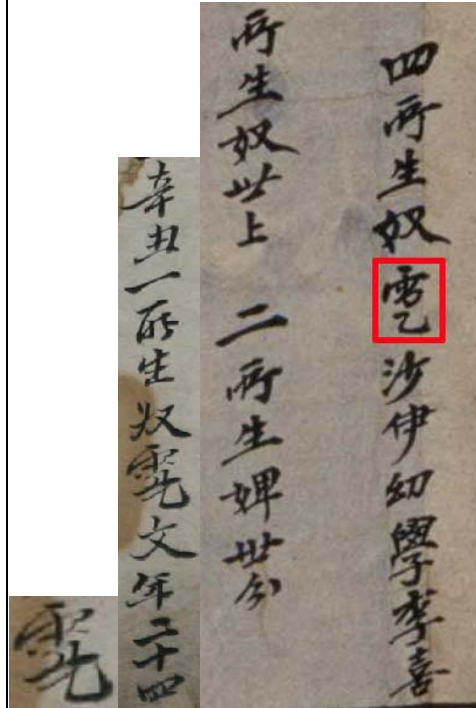 四所生奴沙伊幼學李喜
所生奴世上 二所生婢世分
辛丑一所生奴文年二十四